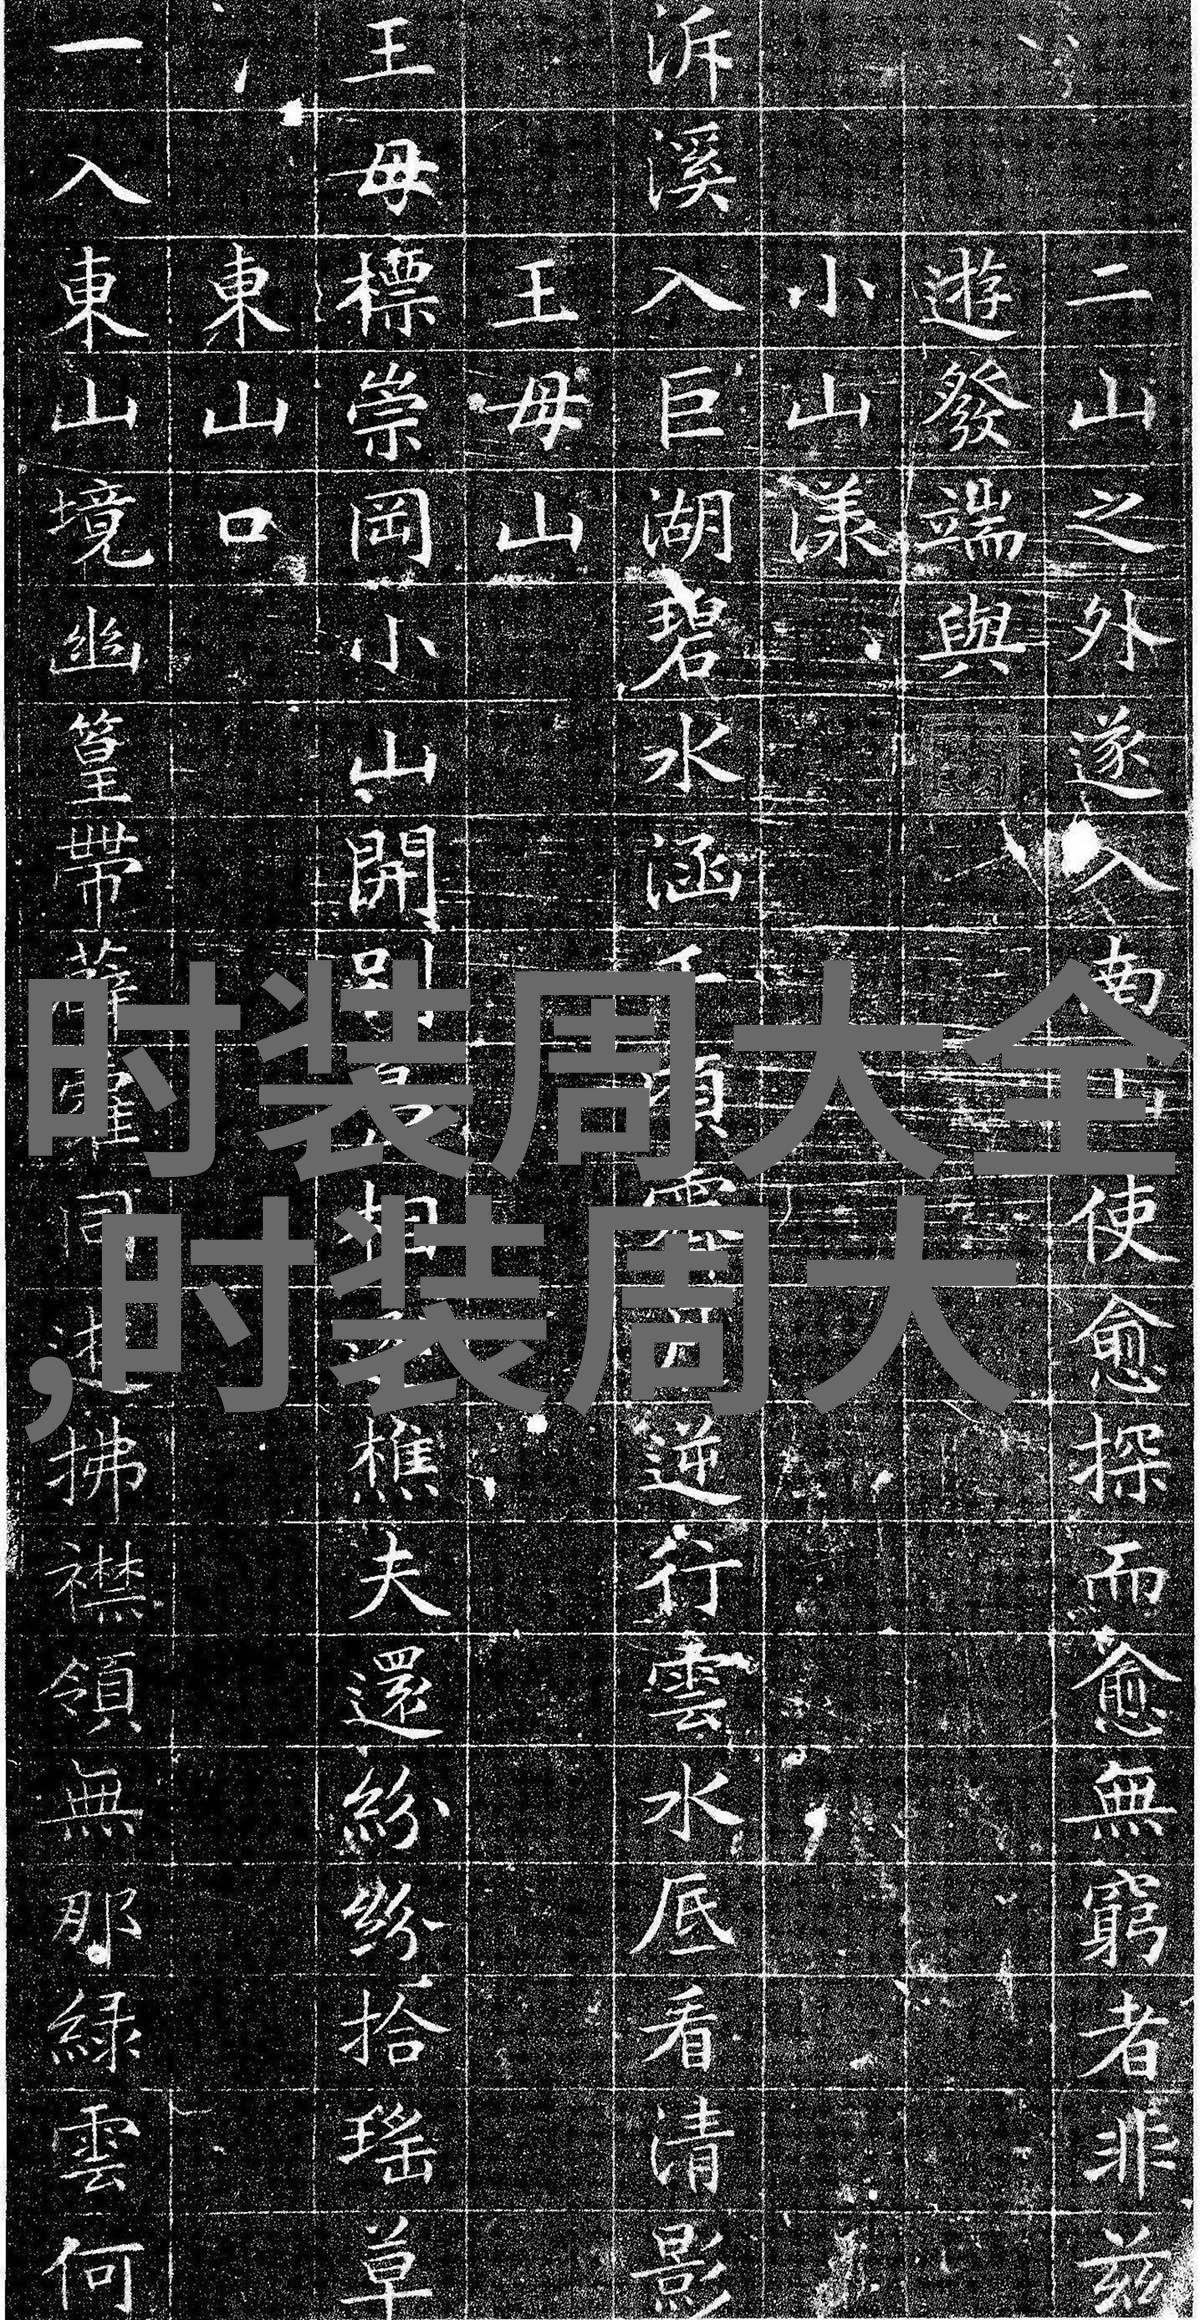 二山之外遂入南山使愈探而愈無窮者非兹
遊發端與
小山漾
泝溪入巨湖碧水涵千頃逆行雲水底看清影
王母山
王母標崇岡小山開別相樵夫還紛紛拾瑤草
東山口
一入東山境幽篁帶薜同拂襟領無那綠雲何
时装周大全
,时装周大